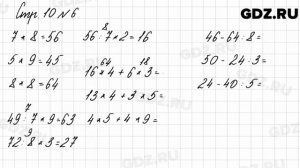 GDZ.RU
Стр. 10 № 6
7 × 8 = 56
5 × 9 = 45
8 × 8 = 64
7
49 : 7 × 9 = 63
9
72 : 8 × 3 = 27
8
56 : 7 × 2 = 16
64 18
16 × 4 + 6 × 3 =
13 × 4 + 3 × 5 =
4 × 5 + 4 × 9 =
46 - 64 : 8 =
50 - 24 : 3 =
24 - 40 : 5 =
GDZ.RU